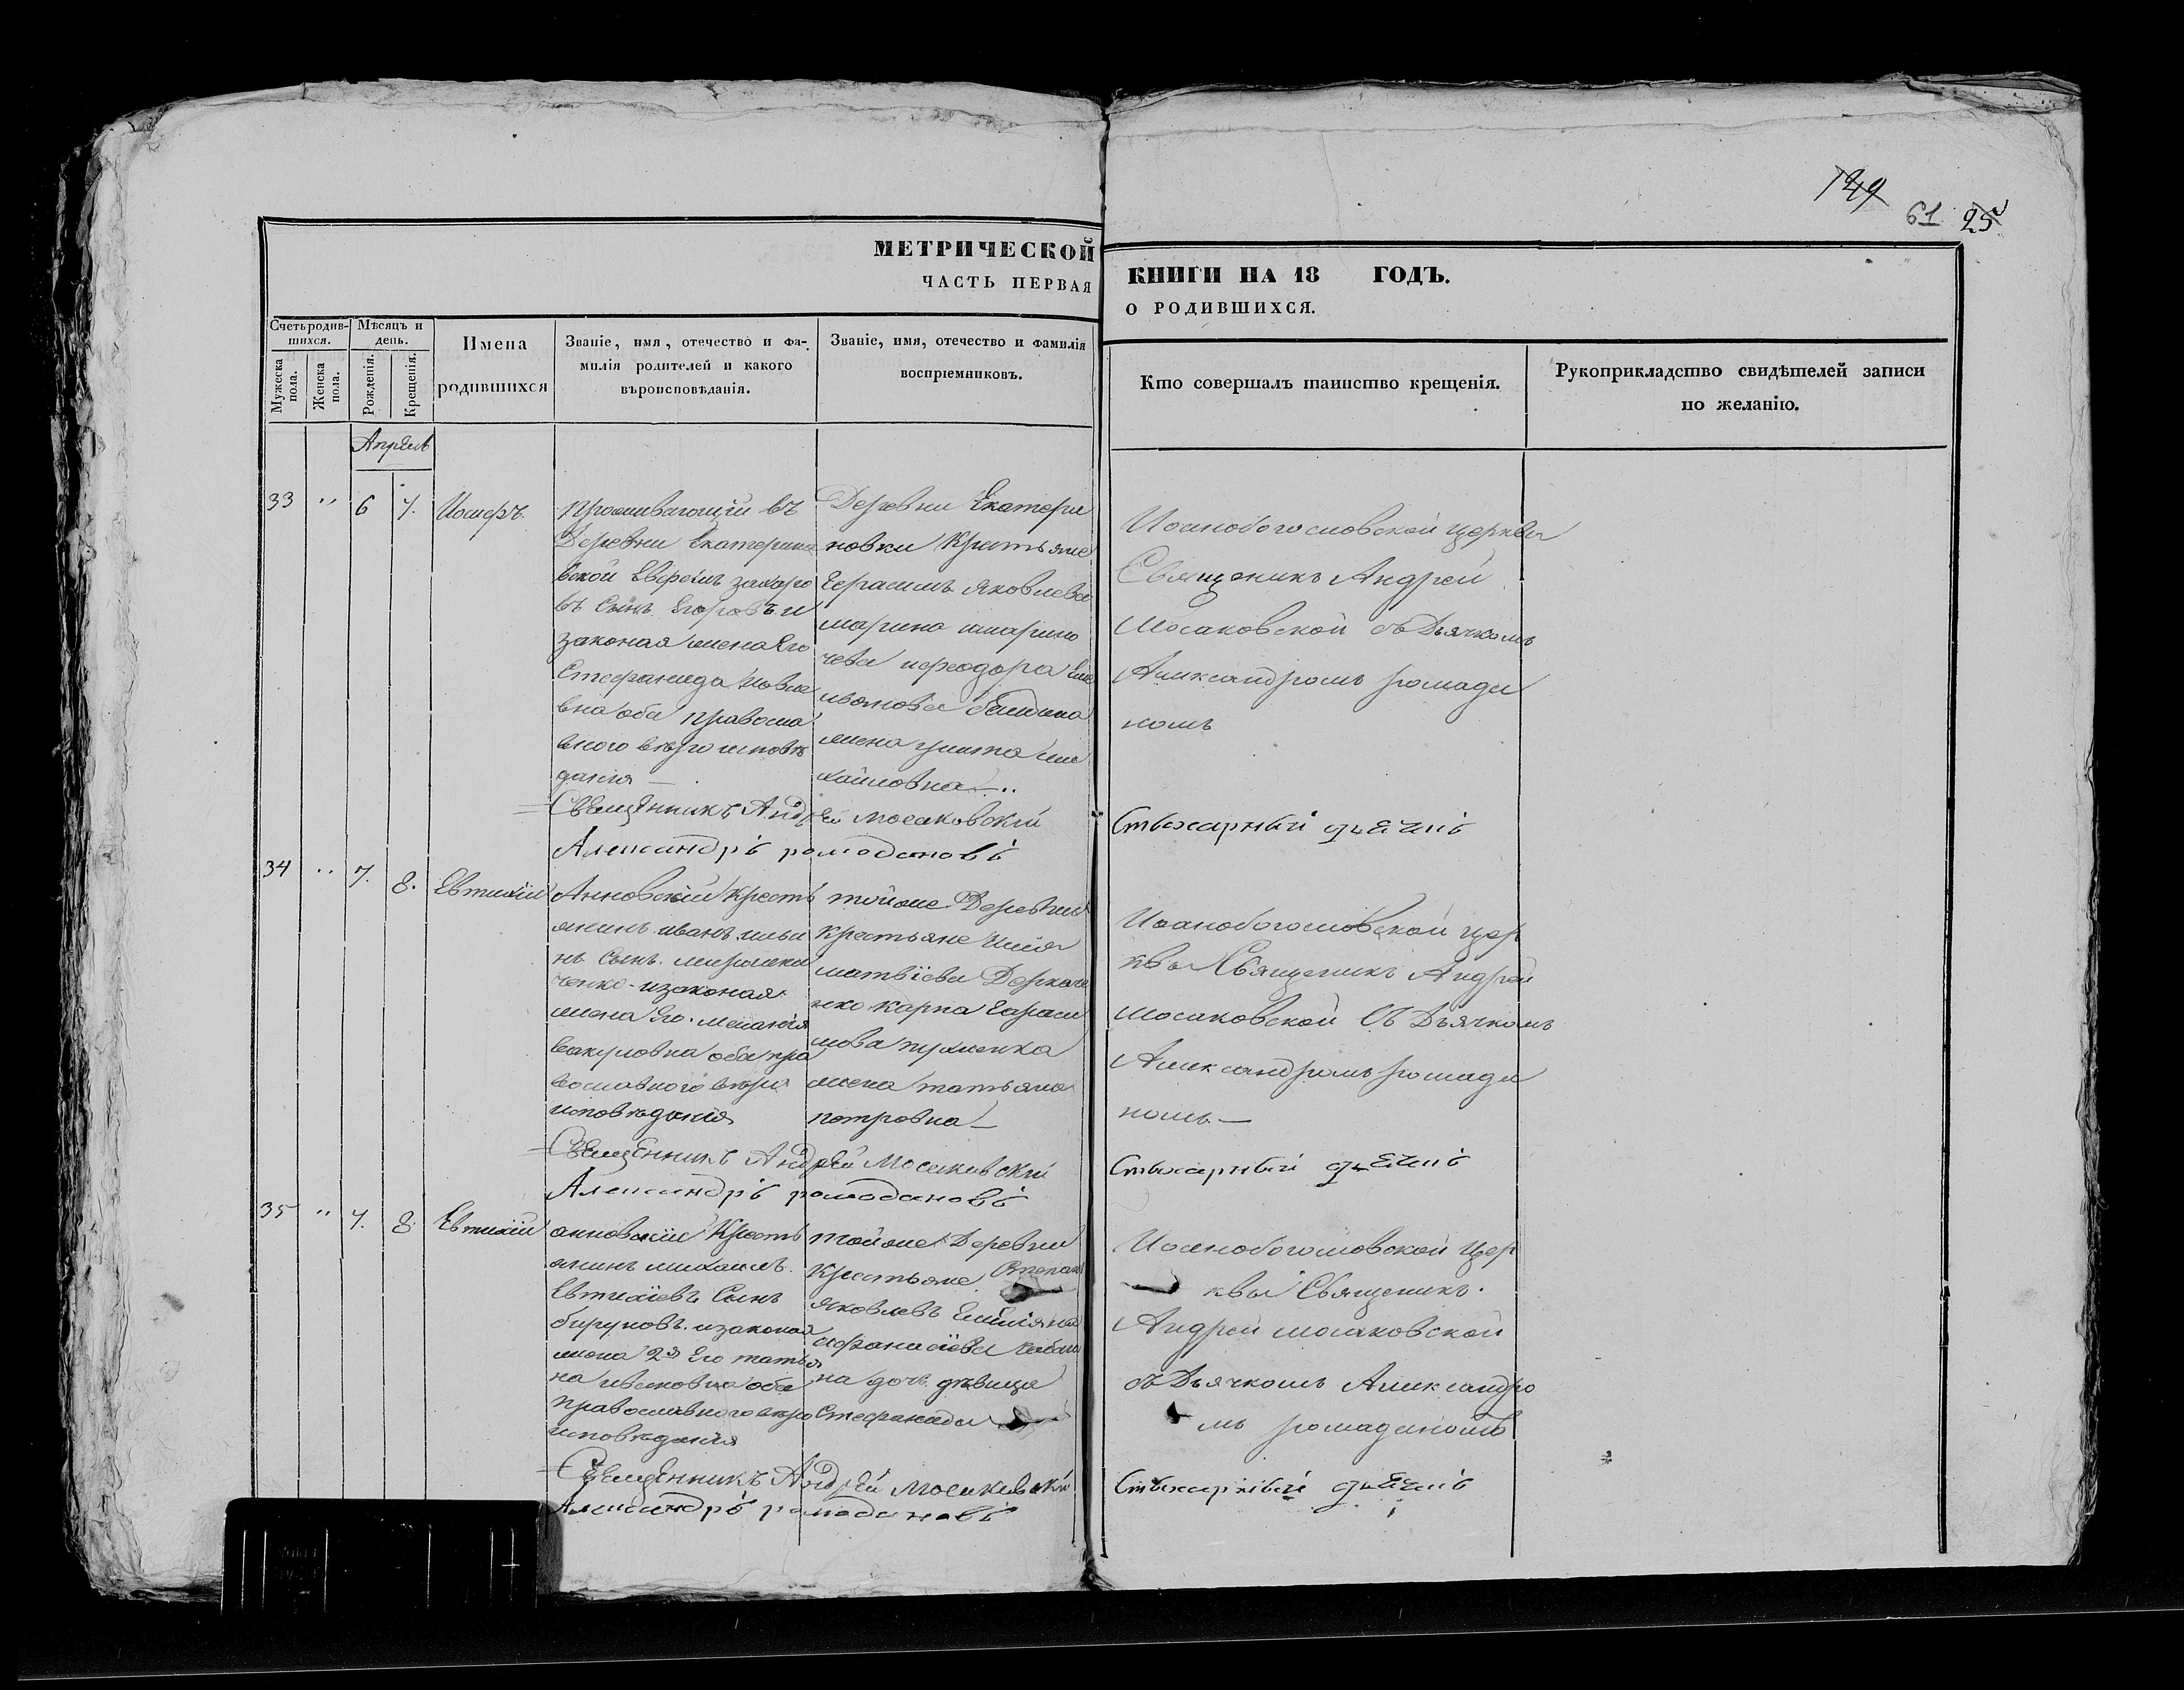 149
61 25
МЕТРИЧЕСКОЙ КНИГИ НА 18 ГОДЪ.
ЧАСТЬ ПЕРВАЯ О РОДИВШИХСЯ.
Счетъ родив-
шихся.
Мужеска пола.
Женска пола.
Мѣсяцъ и
день.
Рожденія.
Крещенія.
Имена
родившихся
Званіе, имя, отечество и фа-
милія родителей и какого
вѣроисповѣданія.
Званіе, имя, отечество и фамилія
воспріемниковъ.
Кто совершалъ таинство крещенія.
Рукоприкладство свидѣтелей записи
по желанію.
Апрель
33 " 6 7. Иосифъ.
Проживающій въ
Деревни Екатерино
вской Ефремъ захаро
въ Сынъ Егоровъ и
законая жена Его
Стефанида
вна оба Православ
вного вѣроисповѣ
данія —
Деревни Екатери
новки Крестьяне
Герасимъ Яковлева
марина
чева ифеодора
иванова
жена
хайловна
Иоанобогословской церквы
Священикъ Андрей
Мосаковской съ Дьячкомъ
Александромъ ромади
номъ
Священникъ Андрей Мосаковскій
Александръ ромодановъ
Стихарный дьячикъ
34 " 7. 8. Евтихій
Анновскій Кресть
янинъ иванъ ильи
нъ Сынъ
ченко изаконая
жена Его Меланія
вакуловна оба пра
вославного вѣро
исповѣданія
тойже Деревни
Крестьяне Илія
матвіева Деркаче
нко карпа Гараси
мова
жена татьяна
петровна —
Иоанобогословской цер
квы Священикъ Андрей
мосаковской Съ Дьячкомъ
Александромъ ромади
номъ —
Священникъ Андрей Мосаковскій
Александръ ромодановъ
Стихарный дьячикъ
35 " 7. 8. Евтихій
анновскій Кресть
янинъ михаилъ
Евтихіевъ Сынъ
бируковъ изаконая
жена 2я Его татья
на ивановна оба
Православного вѣро
исповѣданія
тойже Деревни
Крестьяне Степанъ
яковлевъ Емилiяна
афанасіева
на дочь дѣвица
Стефанида
Иоанобогословской Цер
квы Священикъ
Андрей мосаковской
съ Дьячкомъ Александро
мъ ромадиномъ
Священникъ Андрей Мосаковскій
Александръ ромодановъ
Стихарный дьячикъ